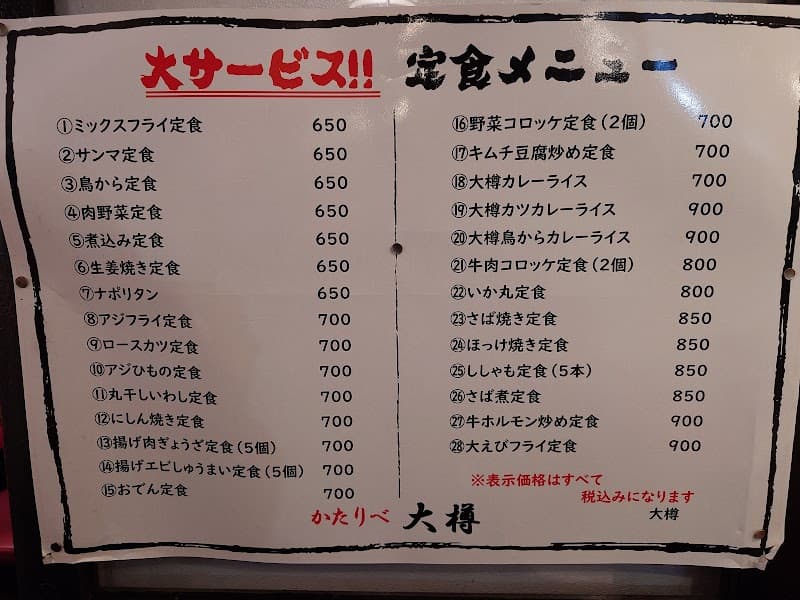 大サービス!! 定食メニュー
①ミックスフライ定食 650
②サンマ定食 650
③鳥から定食 650
④肉野菜定食 650
⑤煮込み定食 650
⑥生姜焼き定食 650
⑦ナポリタン 650
⑧アジフライ定食 700
⑨ロースカツ定食 700
⑩アジひもの定食 700
⑪丸干しいわし定食 700
⑫にしん焼き定食 700
⑬揚げ肉ぎょうざ定食(5個) 700
⑭揚げエビしゅうまい定食(5個) 700
⑮おでん定食 700
⑯野菜コロッケ定食(2個) 700
⑰キムチ豆腐炒め定食 700
⑱大樽カレーライス 700
⑲大樽カツカレーライス 900
⑳大樽鳥からカレーライス 900
㉑牛肉コロッケ定食(2個) 800
㉒いか丸定食 800
㉓さば焼き定食 850
㉔ほっけ焼き定食 850
㉕ししゃも定食(5本) 850
㉖さば煮定食 850
㉗牛ホルモン炒め定食 900
㉘大えびフライ定食 900
※表示価格はすべて
税込みになります
大樽
かたりべ 大樽